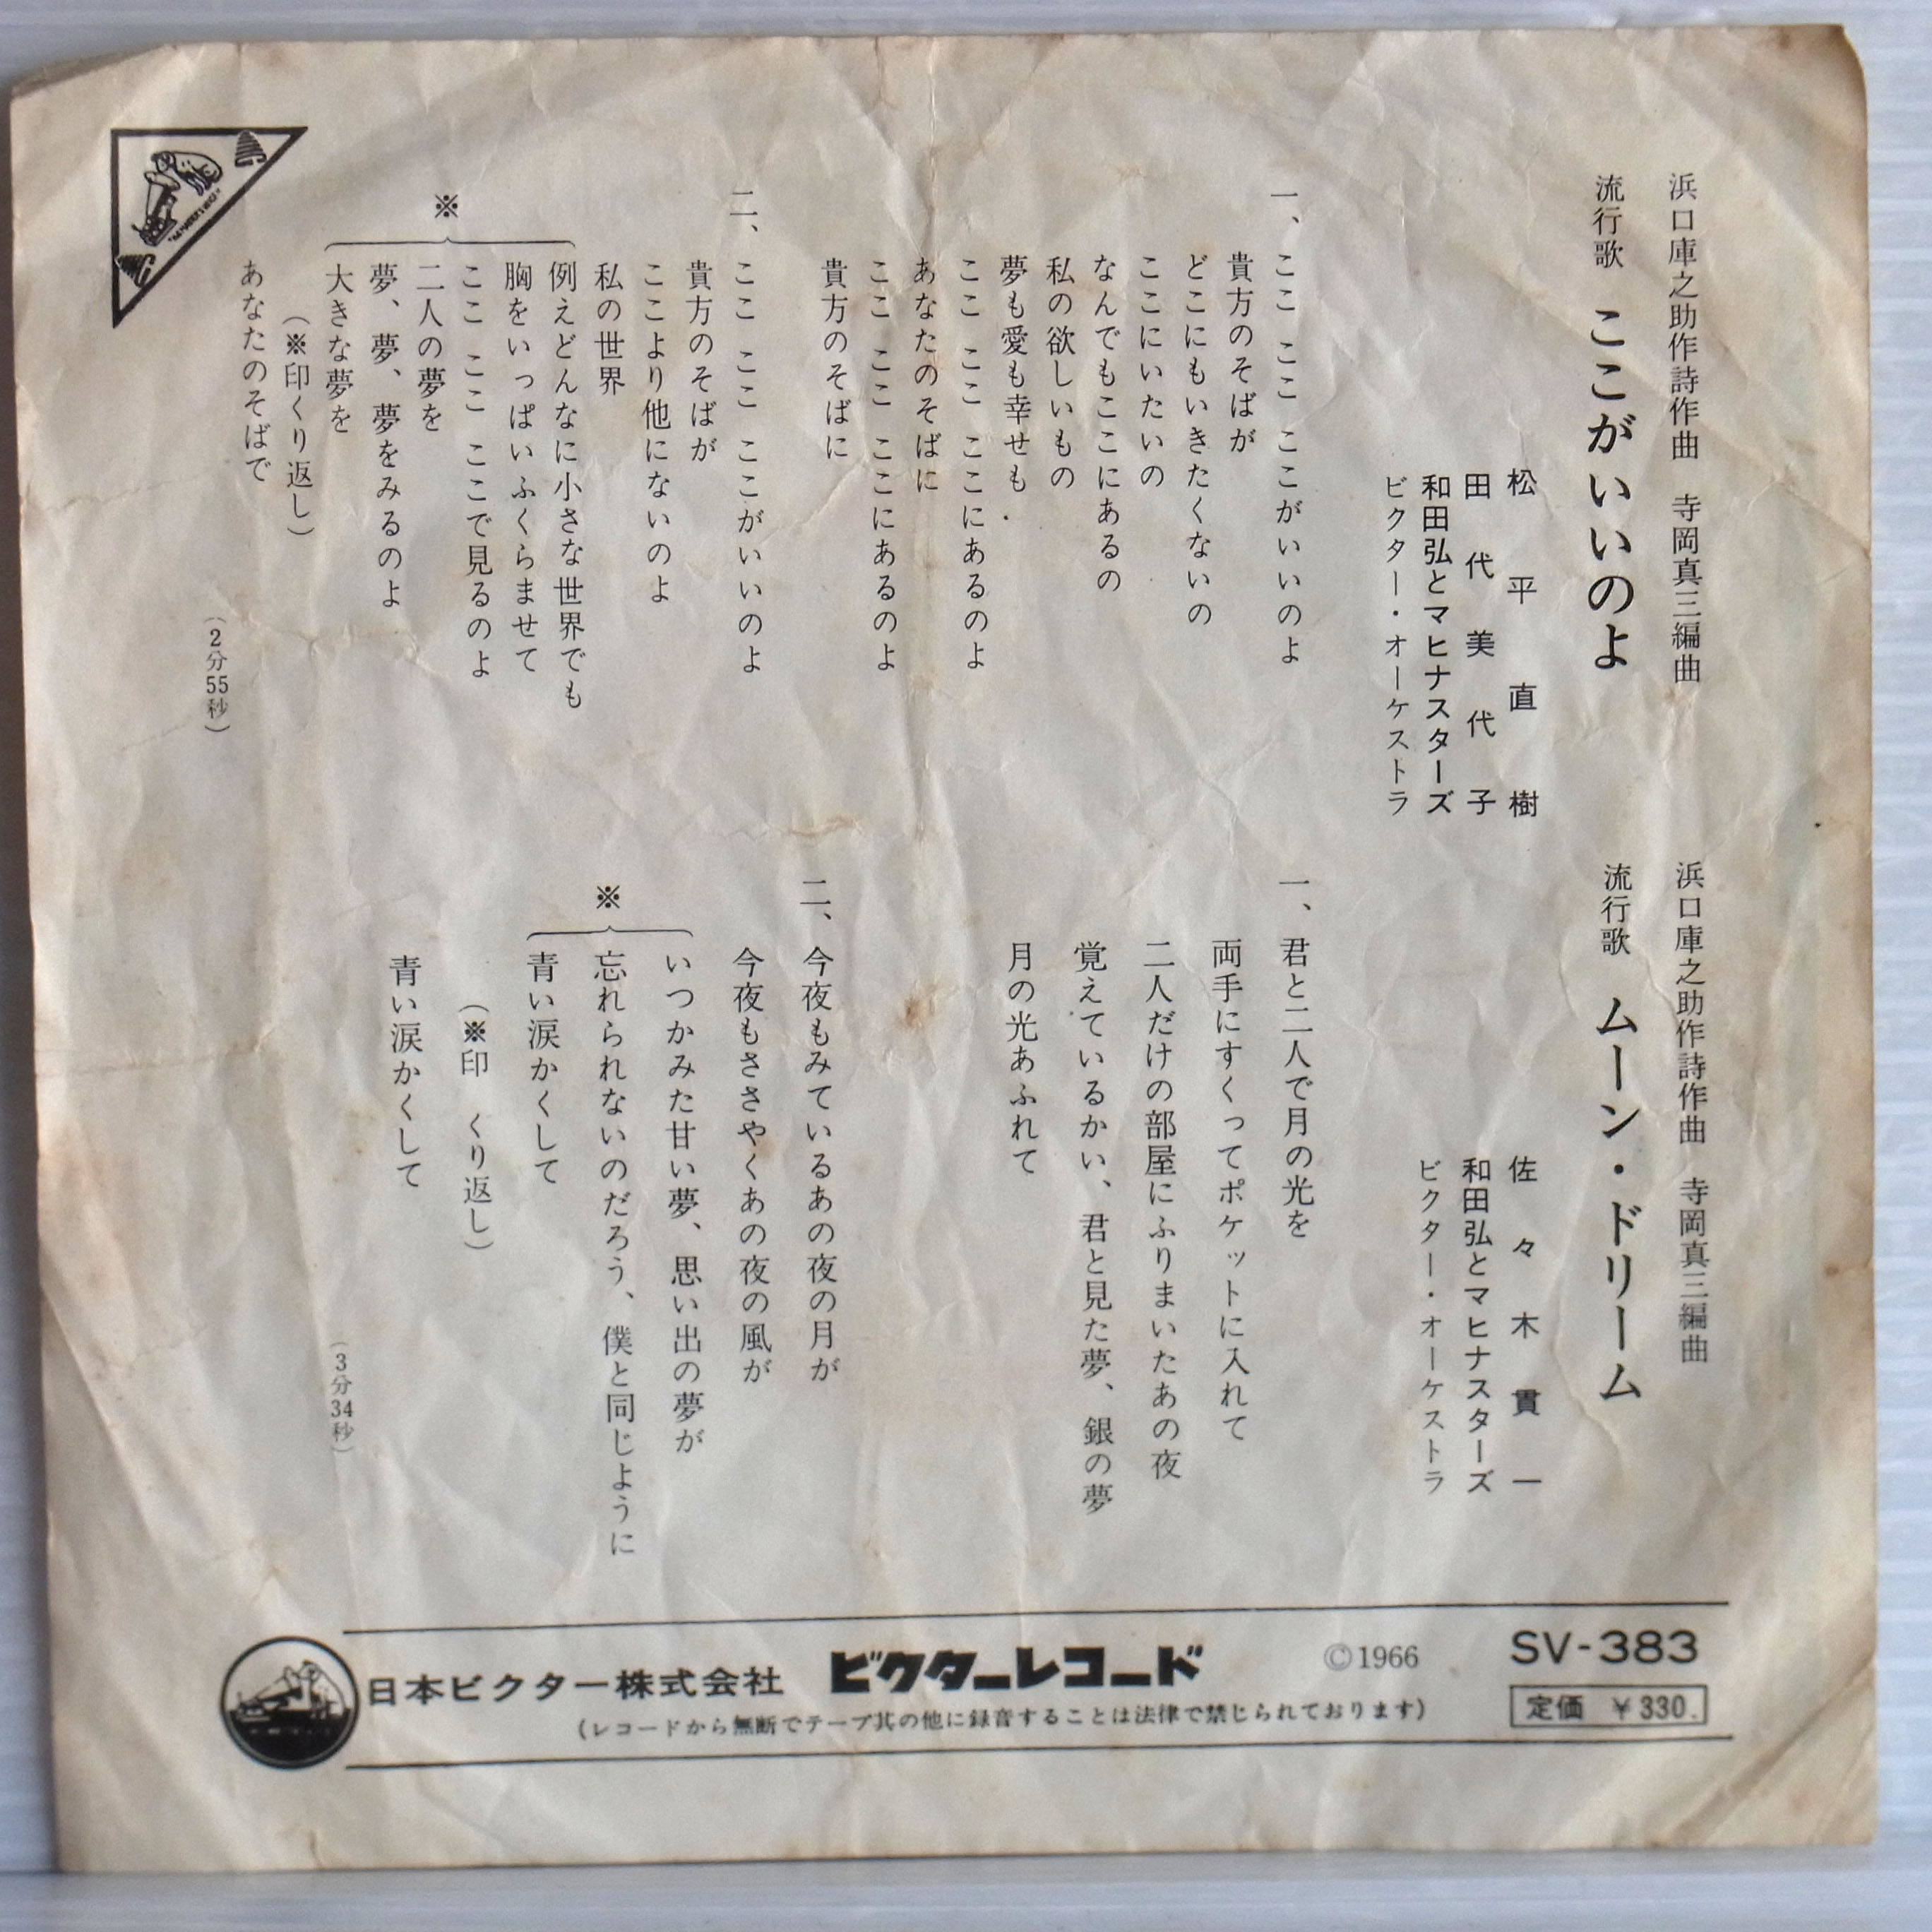 浜口庫之助作詩作曲　寺岡真三編曲
流行歌　ここがいいのよ
松平直樹
田代美代子
和田弘とマヒナスターズ
ビクター・オーケストラ
一、ここ　ここ　ここがいいのよ
貴方のそばが
どこにもいきたくないの
ここにいたいの
なんでもここにあるの
私の欲しいもの
夢も愛も幸せも
ここ　ここ　ここにあるのよ
あなたのそばに
ここ　ここ　ここにあるのよ
貴方のそばに
二、ここ　ここ　ここがいいのよ
貴方のそばが
ここより他にないのよ
私の世界
※
例えどんなに小さな世界でも
胸をいっぱいふくらませて
ここ　ここ　ここで見るのよ
二人の夢を
夢、夢、夢をみるのよ
大きな夢を
（※印くり返し）
あなたのそばで
（2分55秒）
浜口庫之助作詩作曲　寺岡真三編曲
流行歌　ムーン・ドリーム
佐々木貫一
和田弘とマヒナスターズ
ビクター・オーケストラ
一、君と二人で月の光を
両手にすくってポケットに入れて
二人だけの部屋にふりまいたあの夜
覚えているかい、君と見た夢、銀の夢
月の光あふれて
二、今夜もみているあの夜の月が
今夜もささやくあの夜の風が
※
いつかみた甘い夢、思い出の夢が
忘れられないのだろう、僕と同じように
青い涙かくして
（※印　くり返し）
青い涙かくして
（3分34秒）
日本ビクター株式会社　ビクターレコード　©1966　SV-383
(レコードから無断でテープ其の他に録音することは法律で禁じられております)
定価　¥330.